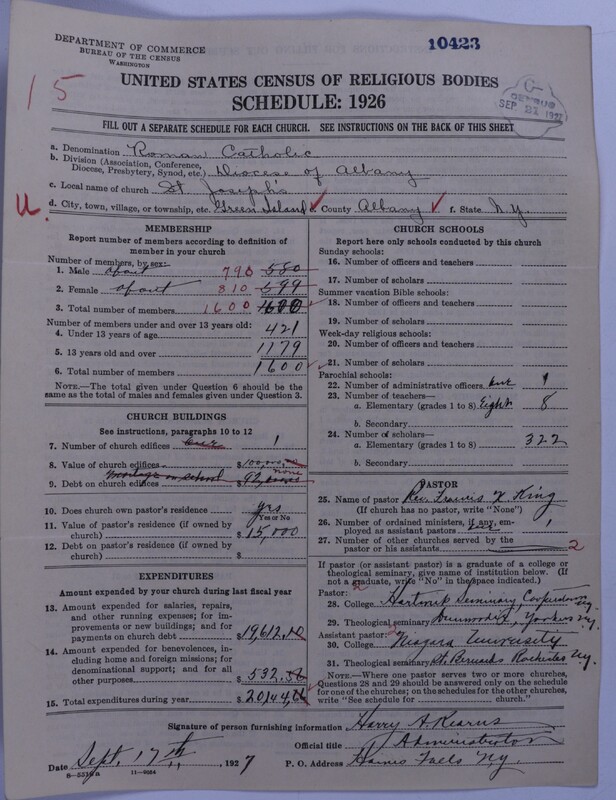 DEPARTMENT OF COMMERCE
BUREAU OF THE CENSUS
WASHINGTON
10423
15
UNITED STATES CENSUS OF RELIGIOUS BODIES
SCHEDULE: 1926
C-
CENSUS
SEP 21 1927
FILL OUT A SEPARATE SCHEDULE FOR EACH CHURCH. SEE INSTRUCTIONS ON THE BACK OF THIS SHEET
a. Denomination Roman Catholic
b. Division (Association, Conference,
Diocese, Presbytery, Synod, etc.) Diocese of Albany
c. Local name of church St Joseph's
U.
d. City, town, village, or township, etc. Green Island e. County Albany f. State N.Y.
MEMBERSHIP
Report number of members according to definition of
member in your church
Number of members, by sex:
1. Male about 790 580
2. Female about 810 599
3. Total number of members 1600
Number of members under and over 13 years old:
4. Under 13 years of age 421
5. 13 years old and over 1179
6. Total number of members 1600
NOTE.—The total given under Question 6 should be the
same as the total of males and females given under Question 3.
CHURCH BUILDINGS
See instructions, paragraphs 10 to 12
7. Number of church edifices one 1
8. Value of church edifices $100,000
9. Debt on church edifices mortgage on school $92,000 none
10. Does church own pastor's residence yes
Yes or No
11. Value of pastor's residence (if owned by
church) $15,000
12. Debt on pastor's residence (if owned by
church) $
EXPENDITURES
Amount expended by your church during last fiscal year
13. Amount expended for salaries, repairs,
and other running expenses; for im-
provements or new buildings; and for
payments on church debt $19,612.10
14. Amount expended for benevolences,
including home and foreign missions; for
denominational support; and for all
other purposes $532.56
15. Total expenditures during year $
CHURCH SCHOOLS
Report here only schools conducted by this church
Sunday schools:
16. Number of officers and teachers
17. Number of scholars
Summer vacation Bible schools:
18. Number of officers and teachers
19. Number of scholars
Week-day religious schools:
20. Number of officers and teachers
21. Number of scholars
Parochial schools:
22. Number of administrative officers one 1
23. Number of teachers—
a. Elementary (grades 1 to 8) Eight 8
b. Secondary
24. Number of scholars—
a. Elementary (grades 1 to 8) 322
b. Secondary
PASTOR
25. Name of pastor Rev. Francis X. King
(If church has no pastor, write "None")
26. Number of ordained ministers, if any, em-
ployed as assistant pastors one 1
27. Number of other churches served by the
pastor or his assistants 2
If pastor (or assistant pastor) is a graduate of a college or
theological seminary, give name of institution below. (If
not a graduate, write "No" in the space indicated.)
Pastor:
28. College Hartwick Seminary, N.Y.
29. Theological seminary Dunwoodie, Yonkers N.Y.
Assistant pastor:
30. College Niagara University
31. Theological seminary St Bernards Rochester N.Y.
NOTE.—Where one pastor serves two or more churches,
Questions 28 and 29 should be answered only on the schedule
for one of the churches; on the schedules for the other churches,
write "See schedule for church."
Signature of person furnishing information Harry A. Kearns
Official title Administrator
Date Sept. 17th, 1927 P. O. Address Haines Falls N.Y.
11—9264